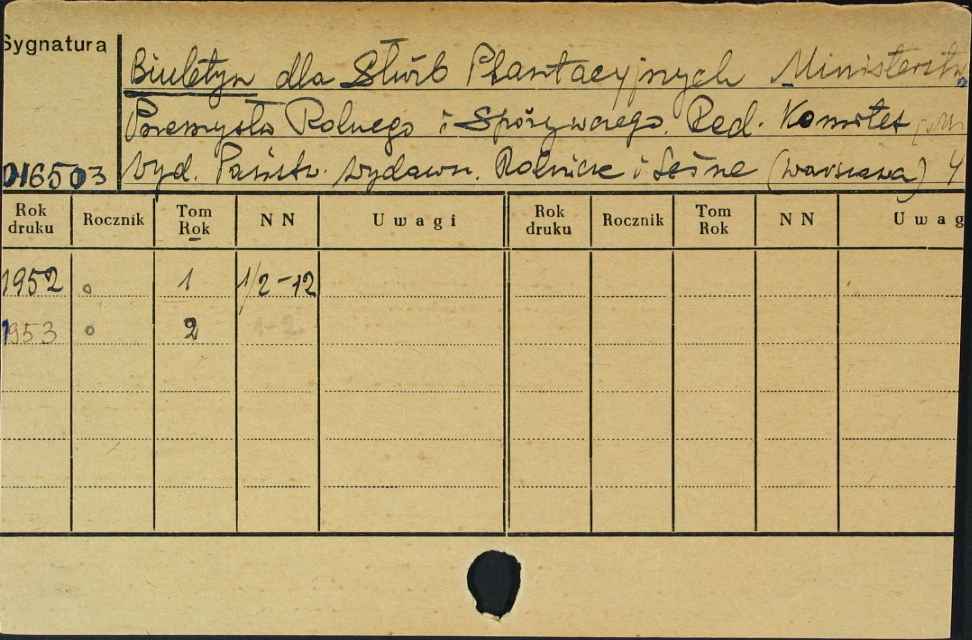 Sygnatura
Biuletyn dla Służb Plantacyjnych Ministerstwa
Przemysłu Rolnego i Spożywczego. Red. Komitet
016503 Wyd. Państw. Wydawn. Rolnicze i Leśne (Warszawa) 4
Rok druku Rocznik Tom Rok NN Uwagi Rok druku Rocznik Tom Rok NN Uwag
1952 o 1 1/2-12
1953 o 2 1-2